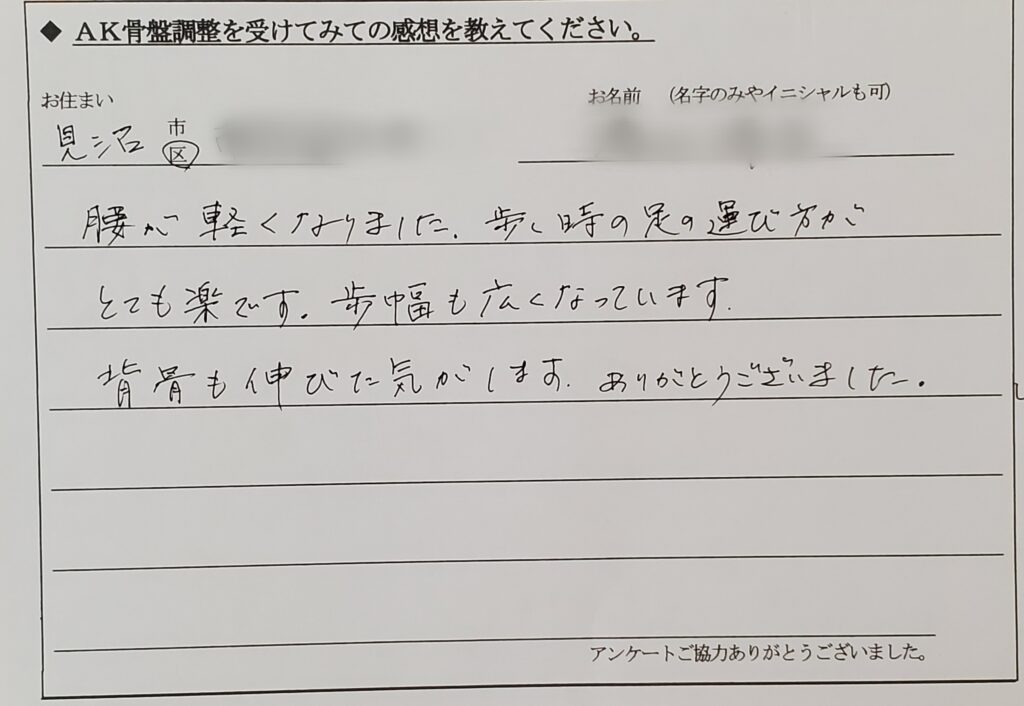 ◆ AK骨盤調整を受けてみての感想を教えてください。
お住まい
お名前 (名字のみやイニシャルも可)
見沼 市 区
腰が軽くなりました. 歩く時の足の運び方が
とても楽です. 歩幅も広くなっています.
背骨も伸びた気がします. ありがとうございました.
アンケートご協力ありがとうございました。